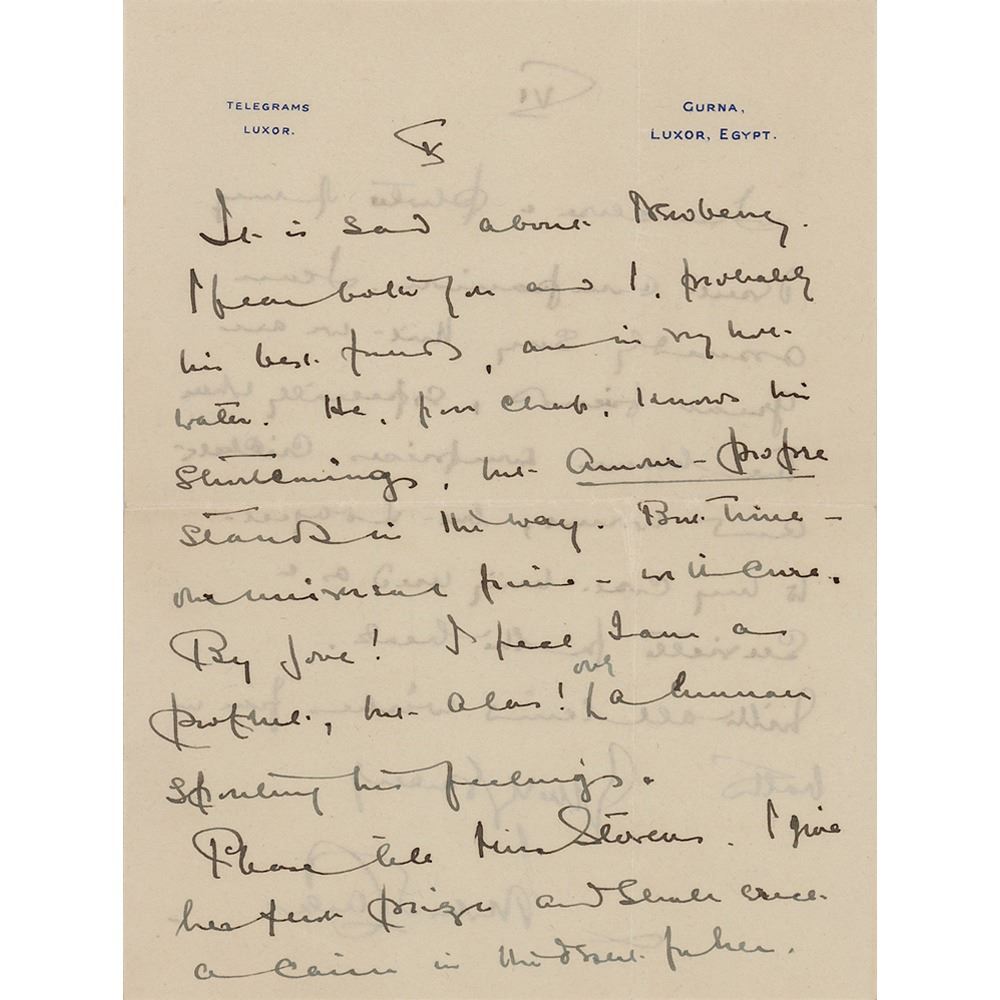 TELEGRAMS
LUXOR.
GURNA,
LUXOR, EGYPT.
V
It is sad about Newberry.
I fear both you and I, probably
his best friends, are in very hot
water. He, poor chap, knows his
shortcomings, but Amour-propre
stands in the way. But Time –
the universal – will cure.
By Jove! I feel I am a
prophet, but Alas! only a human
spouting his feelings.
Please tell Miss Stevens. I give
her first prize and shall erect
a cairn in the desert for her.